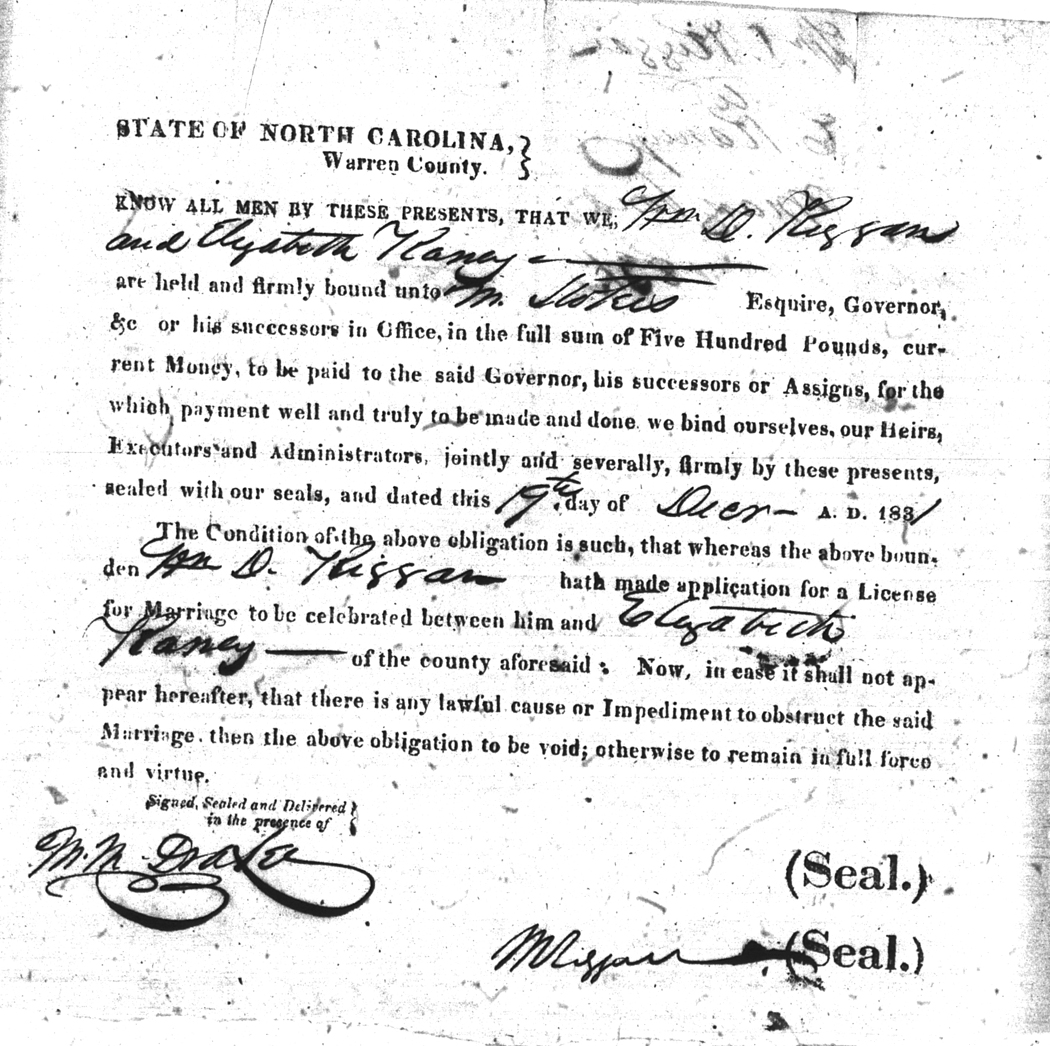 STATE OF NORTH CAROLINA,
Warren County.
KNOW ALL MEN BY THESE PRESENTS, THAT WE, Wm D. Riggan
and Elizabeth Raney
are held and firmly bound unto M. Stokes Esquire, Governor,
&c or his successors in Office, in the full sum of Five Hundred Pounds, cur-
rent Money, to be paid to the said Governor, his successors or Assigns, for the
which payment well and truly to be made and done we bind ourselves, our Heirs,
Executors and Administrators, jointly and severally, firmly by these presents,
sealed with our seals, and dated this 19th day of Decr A. D. 1831
The Condition of the above obligation is such, that whereas the above boun-
den Wm D. Riggan hath made application for a License
for Marriage to be celebrated between him and Elizabeth
Raney of the county aforesaid: Now, in case it shall not ap-
pear hereafter, that there is any lawful cause or Impediment to obstruct the said
Marriage, then the above obligation to be void; otherwise to remain in full force
and virtue.
Signed, Sealed and Delivered
in the presence of
M. M. Drake
(Seal.)
M Riggan (Seal.)